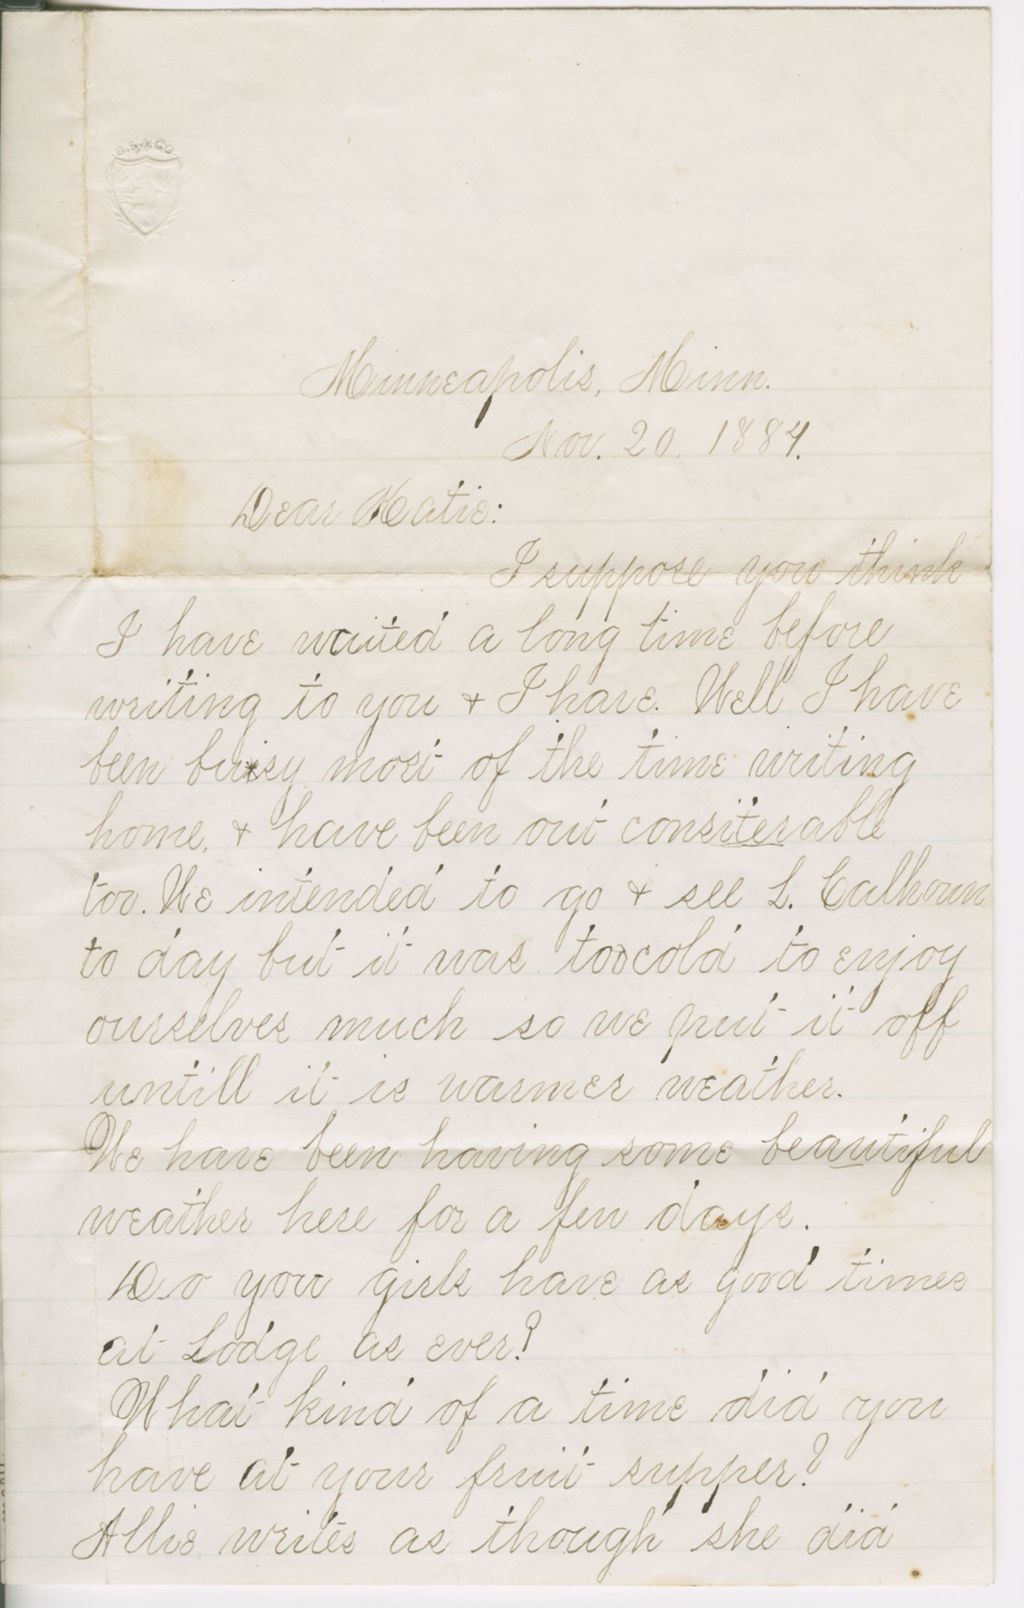 Minneapolis, Minn.
Nov. 20. 1884.
Dear Katie:
I suppose you think
I have waited a long time before
writing to you + I have. Well I have
been buisy most of the time writing
home, + have been out consiterable
too. We intended to go + see L. Calhoun
to day but it was too cold to enjoy
ourselves much so we put it off
untill it is warmer weather.
We have been having some beautiful
weather here for a few days.
Do you girls have as good times
at Lodge as ever?
What kind of a time did you
have at your fruit supper?
Allie writes as though she did